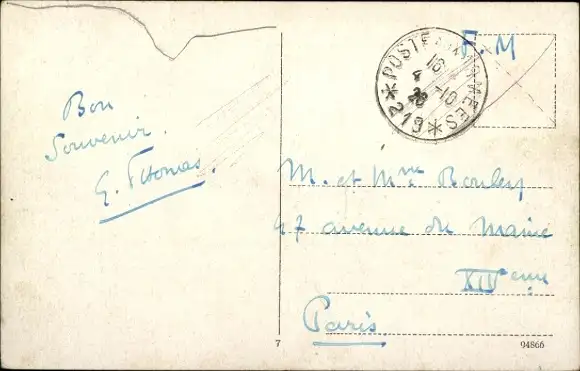 Bon
Souvenir.
G. Thomas.
F. M
POSTE AUX ARMEES
16
-10
*219*
M. et Mme Bouley
47 avenue du Maine
XIVeme
Paris.
7
94866